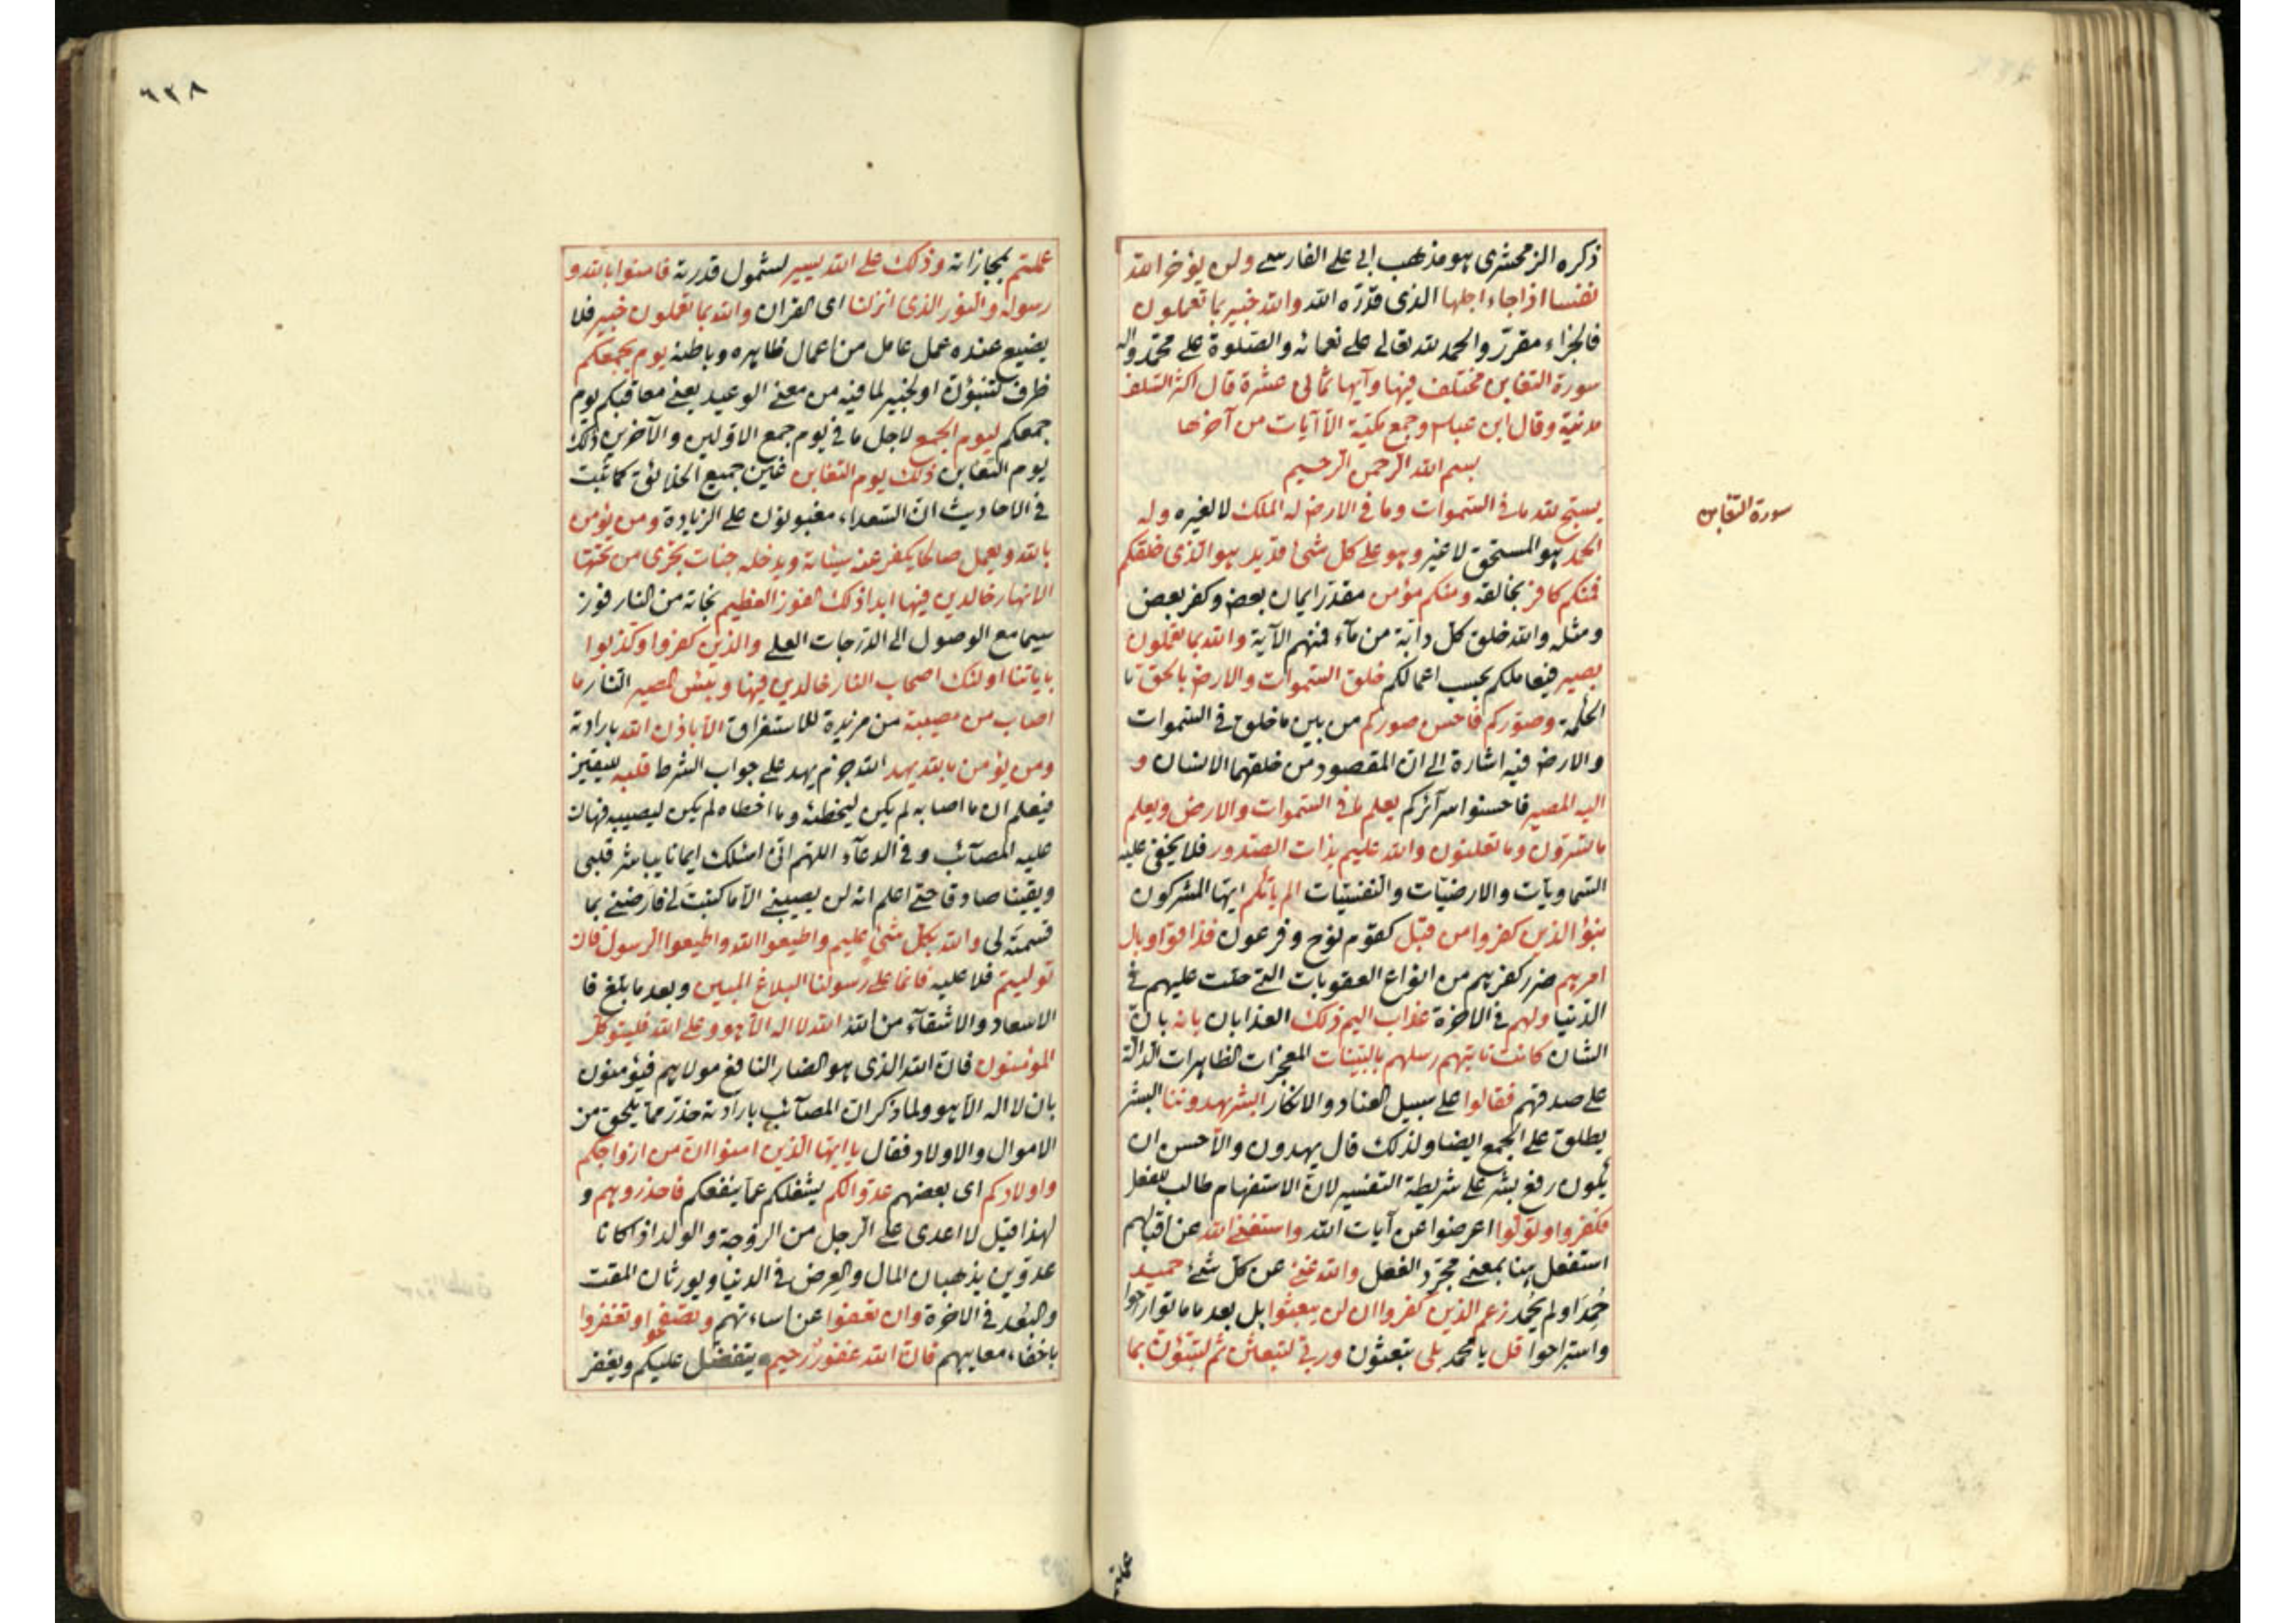 ذكره الزمخشرى هو مذهب ابى على الفارسى ولن يؤخر الله
نفسا اذا جاء اجلها الذى قدّره الله والله خبير بما تعملون
فالجزاء مقرّر والحمد لله تعالى على نعمائه والصلوة على محمّد واله
سورة التغابن مختلف فيها وآيها ثمانى عشرة قال اكثر السّلف
مدنيّة وقال ابن عباس وجمع مكيّة الا آيات من آخرها
بسم الله الرّحمن الرّحيم
سورة التغابن
يسبّح لله ما فى السّموات وما فى الارض له الملك لا لغيره وله
الحمد هو المستحق لا غير وهو على كل شئ قدير هو الذى خلقكم
فمنكم كافر بخالقه ومنكم مؤمن مقدّر ايمان بعض وكفر بعض
ومثله والله خلق كلّ دابّة من مآء فمنهم الآية والله بما تعملون
بصير فيعاملكم بحسب اعمالكم خلق السّموات والارض بالحق
الحكمة وصوّركم فاحسن صوركم من بين ما خلق فى السّموات
والارض فيه اشارة الى ان المقصود من خلقهما الانسان و
اليه المصير فاحسنوا سرآئركم يعلم ما فى السّموات والارض ويعلم
ما تسرّون وما تعلنون والله عليم بذات الصّدور فلا يخفى عليه
السّماويّات والارضيّات والنفسيّات الم ياتكم ايّها المشركون
نبؤ الذين كفروا من قبل كقوم نوح وفرعون فذاقوا وبال
امرهم ضرر كفرهم من انواع العقوبات التى حلّت عليهم فى
الدّنيا ولهم فى الاخرة عذاب اليم ذلك العذابان بانه بانّ
الشان كانت تاتيهم رسلهم بالبيّنات المعجزات الظاهرات الدّالّة
على صدقهم فقالوا على سبيل العناد والانكار ابشر يهدوننا البشر
يطلق على الجمع ايضا ولذلك قال يهدون والاحسن ان
يكون رفع بشر على شريطة التفسير لانّ الاستفهام طالب للفعل
فكفروا وتولّوا اعرضوا عن آيات الله واستغنى الله عن اقبالهم
استفعل هنا بمعنى مجرّد الفعل والله غنىّ عن كلّ شئ حميد
حُمِدَ او لم يُحْمَد زعم الذين كفروا ان لن يبعثوا بل بعد ما ماتوا راحوا
واستراحوا قل يا محمد بلى تبعثون وربّى لتبعثنّ ثم لتنبّؤنّ بما
عملتم
٦٣٨
عملتم بمجازاته وذلك على الله يسير لشمول قدرته فامنوا بالله و
رسوله والنور الذى انزلنا اى القران والله بما تعملون خبير فلا
يضيع عنده عمل عامل من اعمال ظاهره وباطنه يوم يجمعكم
ظرف لتنبّؤنّ او لخبير لما فيه من معنى الوعيد يعنى معاقبكم يوم
جمعكم ليوم الجمع لاجل ما فى يوم جمع الاوّلين والآخرين ذلك
يوم التغابن ذلك يوم التغابن غبن جميع الخلائق كما ثبت
فى الاحاديث انّ السّعداء مغبونون على الزيادة ومن يؤمن
بالله ويعمل صالحا يكفر عنه سيئاته ويدخله جنات تجرى من تحتها
الانهار خالدين فيها ابدا ذلك الفوز العظيم نجاته من النار فوز
سيما مع الوصول الى الدّرجات العلى والذين كفروا وكذّبوا
باياتنا اولئك اصحاب النار خالدين فيها وبئس المصير النّار ما
اصاب من مصيبة من مزيدة للاستغراق الا باذن الله بارادته
ومن يؤمن بالله يهد الله جزم يهد على جواب الشرط قلبه لليقين
فيعلم ان ما اصابه لم يكن ليخطئه وما اخطاه لم يكن ليصيبه فهان
عليه المصآئب وفى الدعآء اللهم انّى اسئلك ايمانا يباشر قلبى
ويقينا صادقا حتى اعلم انه لن يصيبنى الّا ما كتبتَ لى فارضنى بما
قسمته لى والله بكلّ شئ عليم واطيعوا الله واطيعوا الرسول فان
توليتم فلا عليه فانما على رسولنا البلاغ المبين وبعد ما بلّغ فا
الاسعاد والاشقآء من الله الله لا اله الّا هو وعلى الله فليتوكل
المؤمنون فانّ الله الذى هو الضار النافع مولاهم فيؤمنون
بان لا اله الّا هو ولما ذكر ان المصآئب بارادته حذّر ممّا يلحق من
الاموال والاولاد فقال يا ايّها الذين امنوا انّ من ازواجكم
واولادكم اى بعضهم عدوّا لكم يشغلكم عمّا ينفعكم فاحذروهم و
لهذا قيل لا اعدى على الرّجل من الزوجة والولد اذا كانا
عدوّين يذهبان المال والعِرض فى الدنيا ويورثان المقت
والبُعد فى الاخرة وان تعفوا عن اساءتهم وتصفحوا وتغفروا
باخفاء معايبهم فانّ الله غفور رحيم يتفضّل عليكم ويغفر